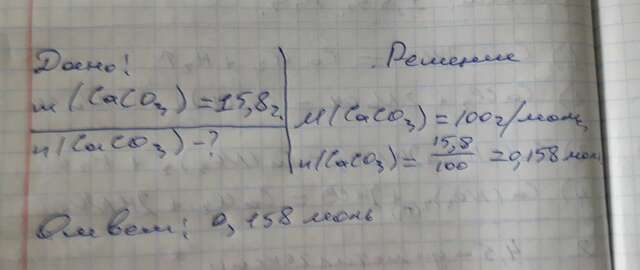 Дано:
m(CaCO3)=15,8г.
n(CaCO3)-?
Решение
M(CaCO3)=100г/моль
n(CaCO3)= 15,8/100 =0,158 моль
Ответ: 0,158 моль